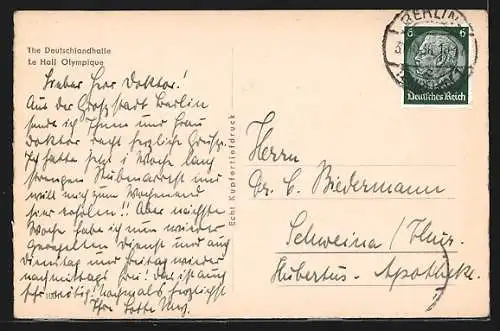 The Deutschlandhalle
Le Hall Olympique
Lieber Herr Doktor!
Aus der Großstadt Berlin
sende ich Ihnen und Frau
Doktor recht herzliche Grüße.
Ich hatte jetzt 1 Woche lang
strengen Stubenarrest und
will mich zum Wochenend
hier erholen!! Aber nächste
Woche habe ich nun wieder
geregelten Dienst und auch
Dienstag und Freitag wieder
nachmittags frei! Das ist auch
sehr nötig! Nochmals herzlichst
Ihre Lotte
Echt Kupfertiefdruck
BERLIN
6 6
Deutsches Reich
Herrn
Dr. C. Biedermann
Schweina / Thür.
Hubertus-Apotheke.